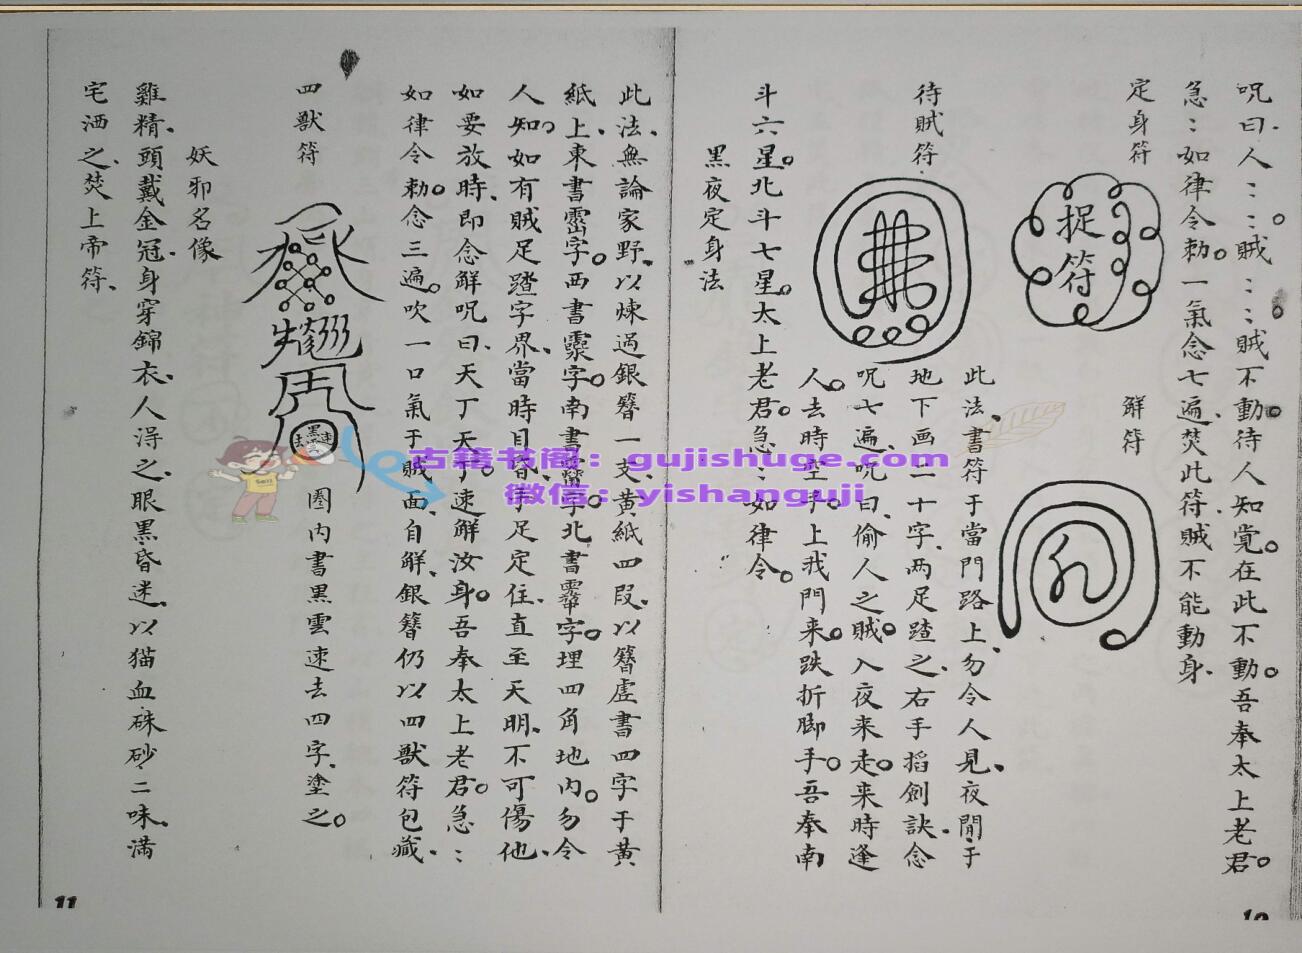 呪曰人：：賊：：賊不動待人知覚在此不動吾奉太上老君
急：如律令勅一氣念七遍焚此符賊不能動身
定身符
捉符
解符
待賊符
此法書符于當門路上勿令人見夜間于
地下画二十字两足踏之右手掐劍訣念
呪七遍呪曰偷人之賊入夜来走来時逢
人去時空手上我門来跌折脚手吾奉南
斗六星北斗七星太上老君急：如律令
黑夜定身法
10
此法無論家野以煉過銀簪一支黄紙四段以簪虚書四字于黄
紙上東書字西書字南書字北書字埋四角地内勿令
人知如有賊足踏字界當時目昏手足定住直至天明不可傷他
如要放時即念解呪曰天丁天丁速解汝身吾奉太上老君急：
如律令勅念三遍吹一口氣于賊面自解銀簪仍以四獣符包藏
四獣符
圏内書黒雲速去四字塗之
妖邪名像
雞精頭戴金冠身穿錦衣人淂之眼黒昏迷以猫血硃砂二味满
宅洒之焚上帝符
11
古籍书阁：gujishuge.com
微信：yishanguji